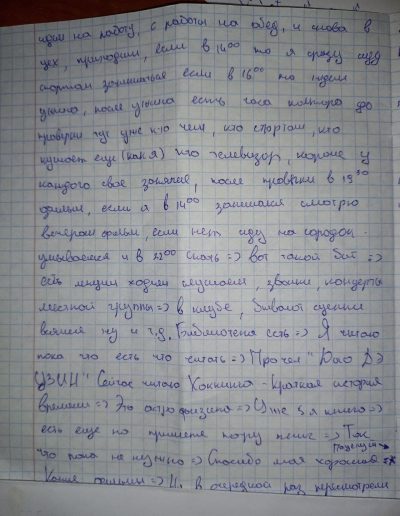 идем на работу, с работы на обед, и снова в
цех, приходим, если в 14⁰⁰ то я сразу иду
спортом заниматься если в 16⁰⁰ то идем
ужина, после ужина есть часа полтора до
проверки где уже кто чем, кто спортом, кто
кушает еще (как я) кто телевизор, короче у
каждого свое занятие, после проверки в 19³⁰
фильм, если я в 14⁰⁰ занимался смотрю
вечером фильм, если нет иду на городок.
умываемся и в 22⁰⁰ спать => вот такой быт =>
есть лекции ходим слушаем, звонки, концерты
местной группы => в клубе, бывают сценки
всякие ну и т.д. Библиотека есть => Я читаю
пока что есть что читать => Прочел "Дао Дэ
Цзин" Сейчас читаю Хоккинга - Краткая история
времени => Это астрофизика => Уже 5я книга =>
есть еще на примете пару книг => Так
что пока не нужно => Спасибо моя хорошая =>
Поцелуи
Какие фильмы => И. в очередной раз пересмотрели